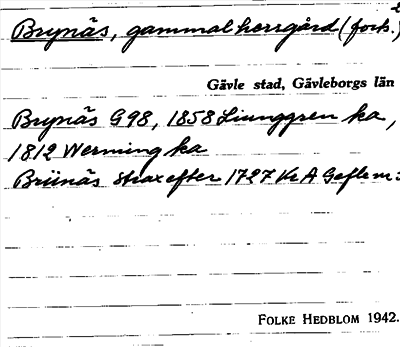 Brynäs, gammal herrgård (forts.)
Gävle stad, Gävleborgs län
Brynäs G98, 1858 Liunggren ka,
1812 Werming ka
Brünäs strax efter 1727 Kr A Geflem:
FOLKE HEDBLOM 1942.